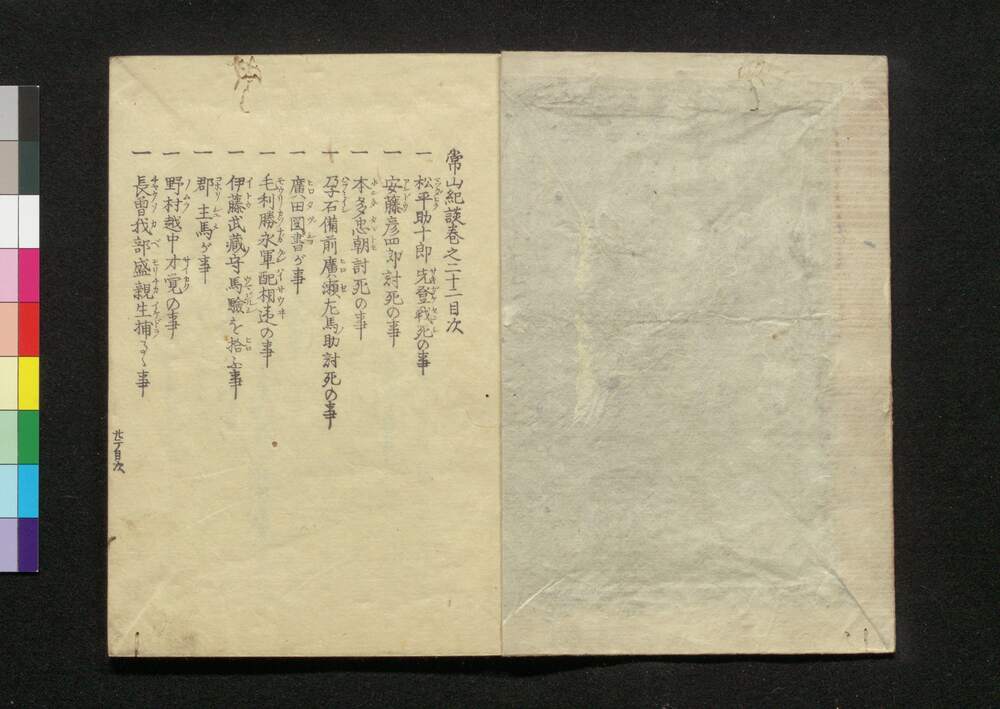 常山紀談巻之二十一目次
一 松平助十郎先登戦死の事
一 安藤彦四郎討死の事
一 本多忠朝討死の事
一 乃石備前廣瀬左馬助討死の事
一 廣田図書が事
一 毛利勝永軍配相違の事
一 伊藤武蔵守馬験を拾ふ事
一 郡主馬が事
一 野村越中才覚の事
一 長曽我部盛親生捕るゝ事
廿一目次